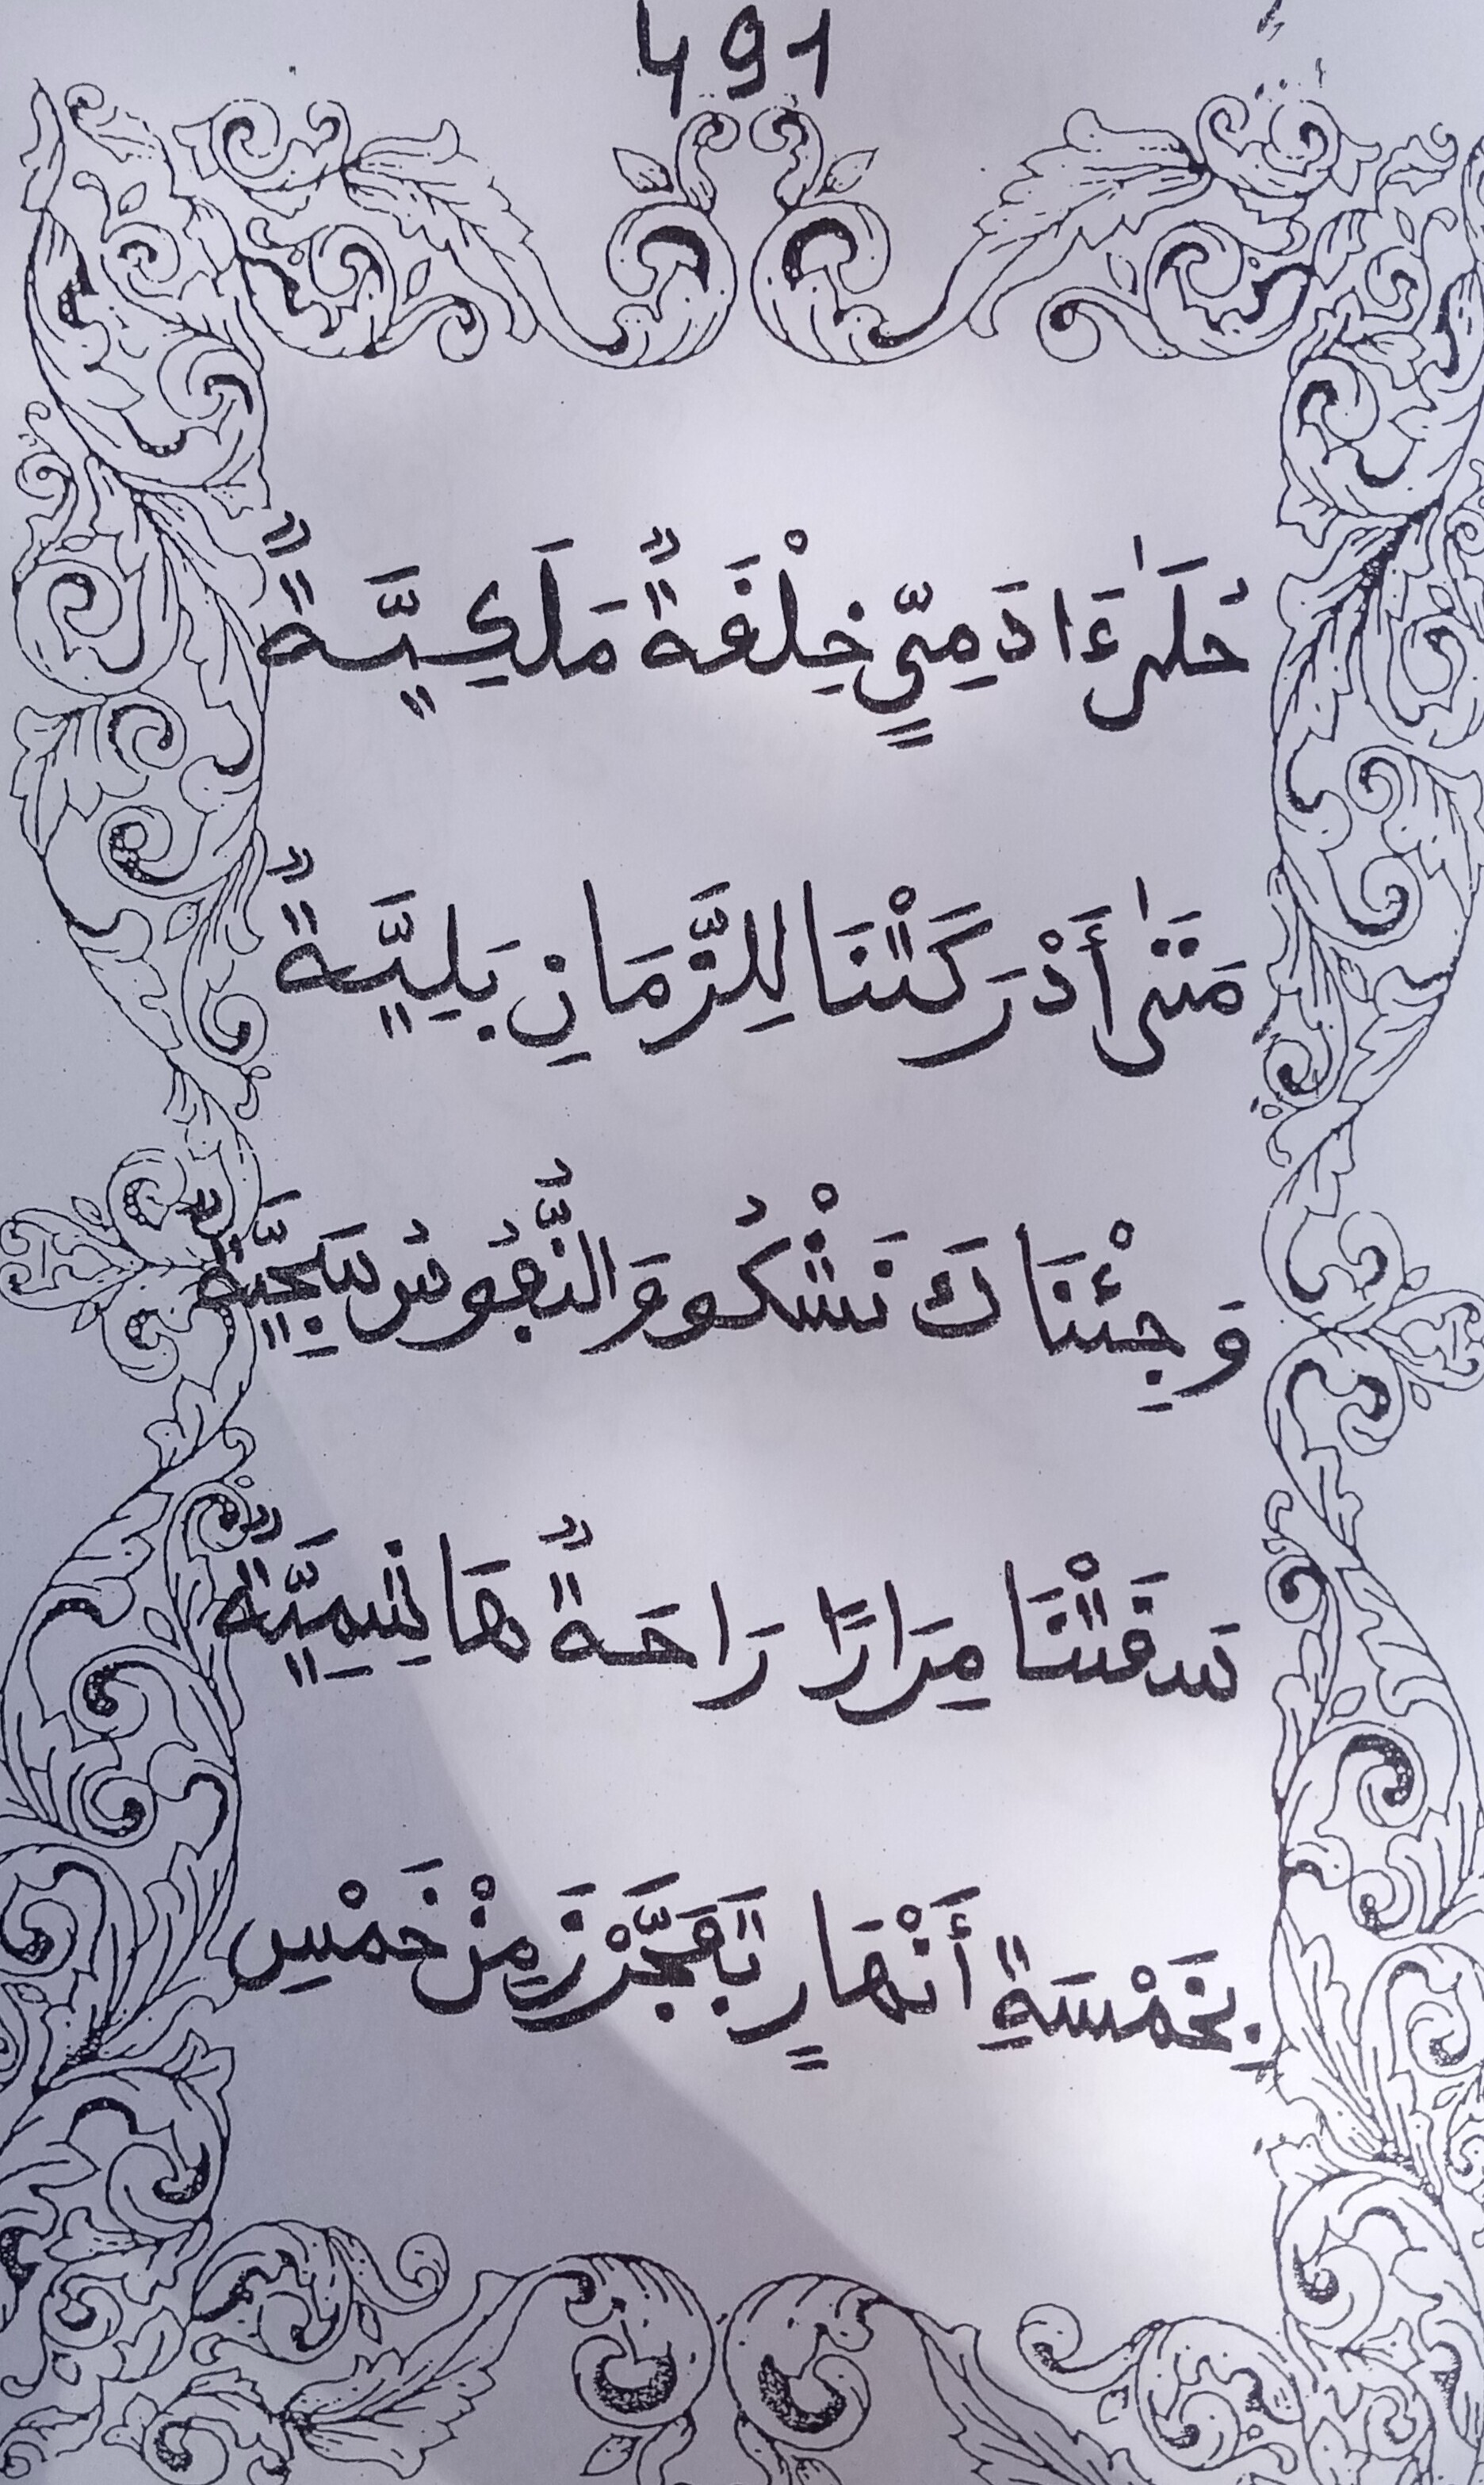 491
حُلَىٰ ءَادَمِيٍّ خِلْفَةٌ مَلَكِيَّةٌ
مَتَىٰ أَدْرَكَتْنَا لِلزَّمَانِ بَلِيَّةٌ
وَجِئْنَاكَ نَشْكُو وَالنُّفُوسُ سَجِيَّةٌ
سَقَتْنَا مِرَارًا رَاحَةٌ هَاشِمِيَّةٌ
بِخَمْسَةِ أَنْهَارٍ تَفَجَّرْنَ مِنْ خَمْسِ